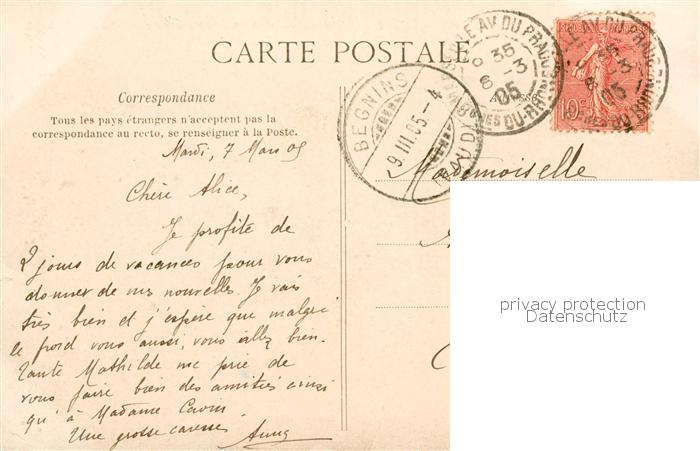 CARTE POSTALE
Correspondance
Tous les pays étrangers n'acceptent pas la
correspondance au recto, se renseigner à la Poste.
Mardi, 7 Mars 05
Chère Alice,
Je profite de
2 jours de vacances pour vous
donner de mes nouvelles. Je vais
très bien et j'espère que malgré
le froid vous aussi, vous allez bien.
Tante Mathilde me prie de
vous faire bien des amitiés ainsi
qu'à Madame
Une grosse caresse
Anna
Mademoiselle
BEGNINS
9.III.05.-4
(VAUD)
AV. DU PRADO
6 35
6 -3
05
BCHES DU-RHONE
AV. DU PRADO
05
10c
privacy protection
Datenschutz